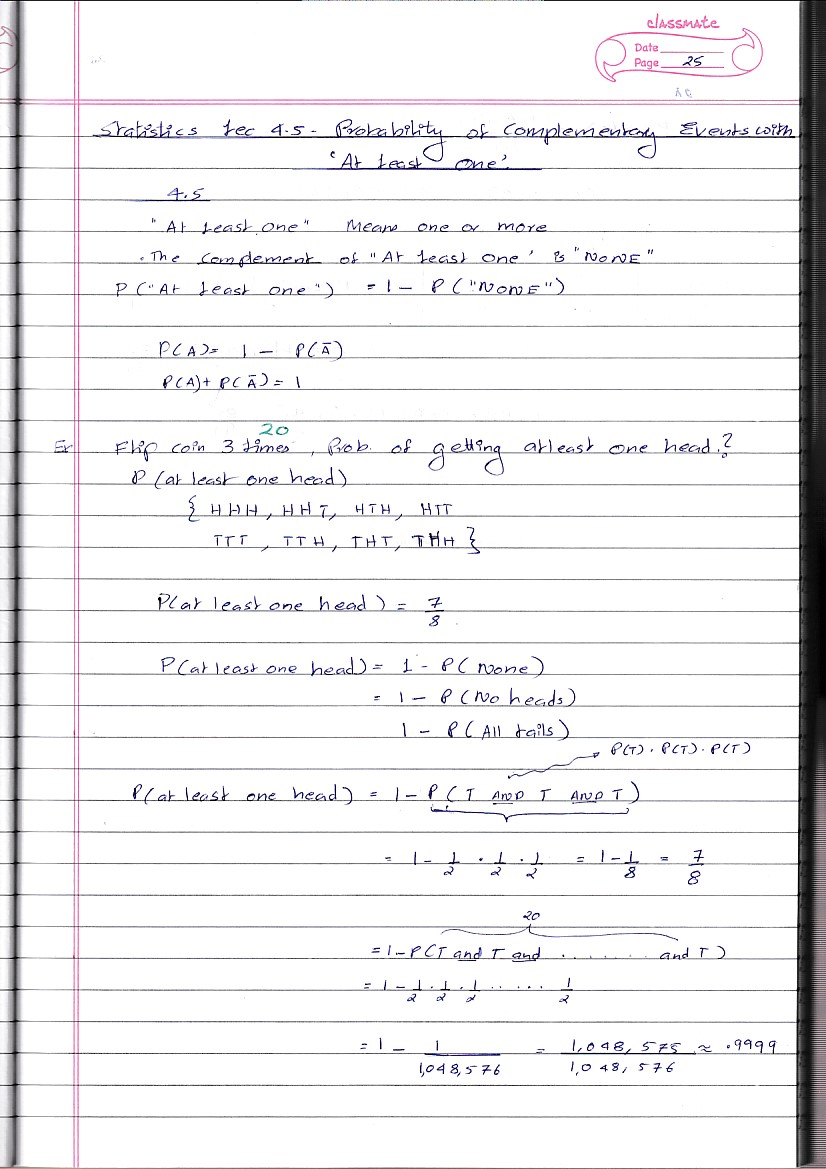 classmate
Date
Page 25
Statistics Lec 4.5 - Probability of Complementary Events with
'At Least One'
4.5
"At Least one" Means one or more
. The complement of "At Least One' is "NONE"
P("At Least one") = 1 - P("NONE")
P(A) = 1 - P(Ā)
P(A) + P(Ā) = 1
20
Ex Flip coin 3 times, Prob. of getting atleast one head.?
P (at least one head)
{ HHH, HHT, HTH, HTT
TTT, TTH, THT, THH }
P(at least one head) = 7/8
P(at least one head) = 1 - P(None)
= 1 - P(No heads)
1 - P(All tails)
P(T) . P(T) . P(T)
P(at least one head) = 1 - P(T AND T AND T)
= 1 - 1/2 . 1/2 . 1/2 = 1 - 1/8 = 7/8
20
= 1 - P(T and T and ........ and T)
= 1 - 1/2 . 1/2 . 1/2 ..... 1/2
= 1 - 1/1,048,576 = 1,048,575/1,048,576 ≈ .9999